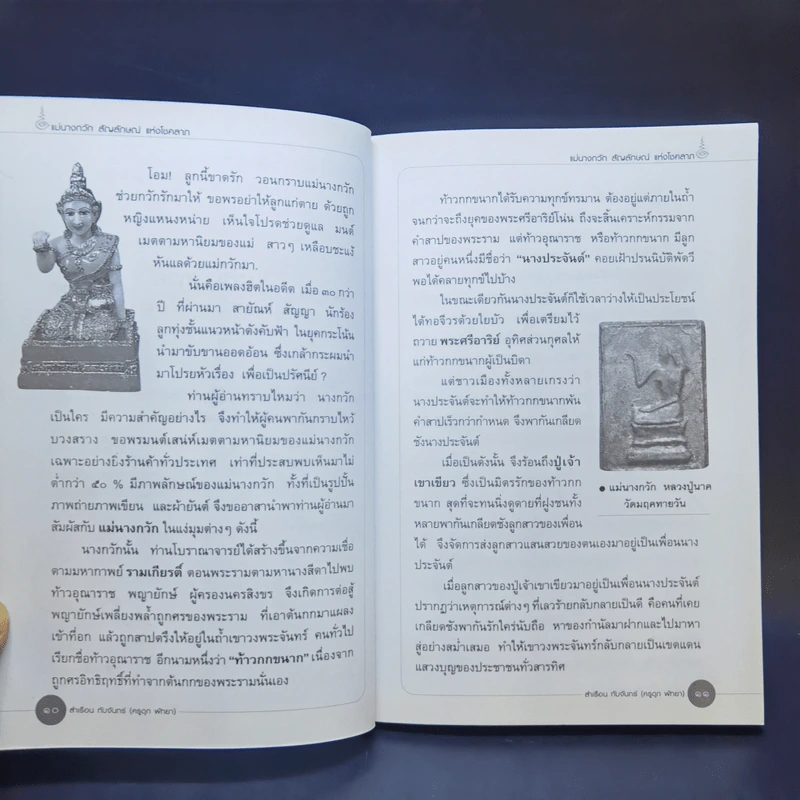 แม่นางกวัก สัญลักษณ์ แห่งโชคลาภ
โอม! ลูกนี้ขาดรัก วอนกราบแม่นางกวัก
ช่วยกวักรักมาให้ ขอพรอย่าให้ลูกแก่ตาย ด้วยถูก
หญิงแหนงหน่าย เห็นใจโปรดช่วยดูแล มนต์
เมตตามหานิยมของแม่ สาวๆ เหลือบชะแง้
หันแลด้วยแม่กวักมา.
นั่นคือเพลงฮิตในอดีต เมื่อ ๓๐ กว่า
ปี ที่ผ่านมา สายัณห์ สัญญา นักร้อง
ลูกทุ่งชั้นแนวหน้าดังคับฟ้า ในยุคกระโน้น
นำมาขับขานออดอ้อน ซึ่งเกล้ากระผมนำ
มาโปรยหัวเรื่อง เพื่อเป็นปรัศนีย์ ?
ท่านผู้อ่านทราบไหมว่า นางกวัก
เป็นใคร มีความสำคัญอย่างไร จึงทำให้ผู้คนพากันกราบไหว้
บวงสรวง ขอพรมนต์เสน่ห์เมตตามหานิยมของแม่นางกวัก
เฉพาะอย่างยิ่งร้านค้าทั่วประเทศ เท่าที่ประสบพบเห็นมาไม่
ต่ำกว่า ๕๐ % มีภาพลักษณ์ของแม่นางกวัก ทั้งที่เป็นรูปปั้น
ภาพถ่ายภาพเขียน และผ้ายันต์ จึงขออาสานำพาท่านผู้อ่านมา
สัมผัสกับ แม่นางกวัก ในแง่มุมต่างๆ ดังนี้
นางกวักนั้น ท่านโบราณาจารย์ได้สร้างขึ้นจากความเชื่อ
ตามมหากาพย์ รามเกียรติ์ ตอนพระรามตามหานางสีดาไปพบ
ท้าวอุณาราช พญายักษ์ ผู้ครองนครสิงขร จึงเกิดการต่อสู้
พญายักษ์เพลี่ยงพล้ำถูกศรของพระราม ที่เอาต้นกกมาแผลง
เข้าที่อก แล้วถูกสาปตรึงให้อยู่ในถ้ำเขาวงพระจันทร์ คนทั่วไป
เรียกชื่อท้าวอุณาราช อีกนามหนึ่งว่า “ท้าวกกขนาก” เนื่องจาก
ถูกศรอิทธิฤทธิ์ที่ทำจากต้นกกของพระรามนั่นเอง
๑๐ สำเริอน ทับจันทร์ (ครูฉุก พัทยา)
แม่นางกวัก สัญลักษณ์ แห่งโชคลาภ
ท้าวกกขนากได้รับความทุกข์ทรมาน ต้องอยู่แต่ภายในถ้ำ
จนกว่าจะถึงยุคของพระศรีอาริย์โน่น ถึงจะสิ้นเคราะห์กรรมจาก
คำสาปของพระราม แต่ท้าวอุณาราช หรือท้าวกกขนาก มีลูก
สาวอยู่คนหนึ่งมีชื่อว่า “นางประจันต์” คอยเฝ้าปรนนิบัติพัดวี
พอได้คลายทุกข์ไปบ้าง
ในขณะเดียวกันนางประจันต์ก็ใช้เวลาว่างให้เป็นประโยชน์
ได้ทอจีวรด้วยใยบัว เพื่อเตรียมไว้
ถวาย พระศรีอาริย์ อุทิศส่วนกุศลให้
แก่ท้าวกกขนากผู้เป็นบิดา
แต่ชาวเมืองทั้งหลายเกรงว่า
นางประจันต์จะทำให้ท้าวกกขนากพ้น
คำสาปเร็วกว่ากำหนด จึงพากันเกลียด
ชังนางประจันต์
เมื่อเป็นดังนั้น จึงร้อนถึงปู่เจ้า
เขาเขียว ซึ่งเป็นมิตรรักของท้าวกก
ขนาก สุดที่จะทนนิ่งดูดายที่ฝูงชนทั้ง
หลายพากันเกลียดชังลูกสาวของเพื่อน
● แม่นางกวัก หลวงปู่นาค
วัดมฤคทายวัน
ได้ จึงจัดการส่งลูกสาวแสนสวยของตนเองมาอยู่เป็นเพื่อนนาง
ประจันต์
เมื่อลูกสาวของปู่เจ้าเขาเขียวมาอยู่เป็นเพื่อนนางประจันต์
ปรากฏว่าเหตุการณ์ต่างๆ ที่เลวร้ายกลับกลายเป็นดี คือคนที่เคย
เกลียดชังพากันรักใคร่นับถือ หาของกำนัลมาฝากและไปมาหา
สู่อย่างสม่ำเสมอ ทำให้เขาวงพระจันทร์กลับกลายเป็นเขตแดน
แสวงบุญของประชาชนทั่วสารทิศ
สำเริอน ทับจันทร์ (ครูฉุก พัทยา) ๑๑